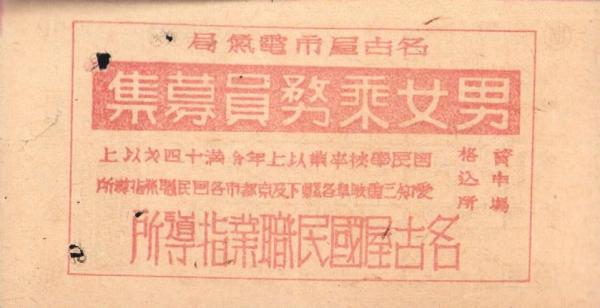 名古屋市電氣局
男女乘務員募集
資格 国民學校卒業以上年令満十四才以上
申込場所 愛知三重岐阜各縣下及京都市各国民職業指導所
名古屋國民職業指導所